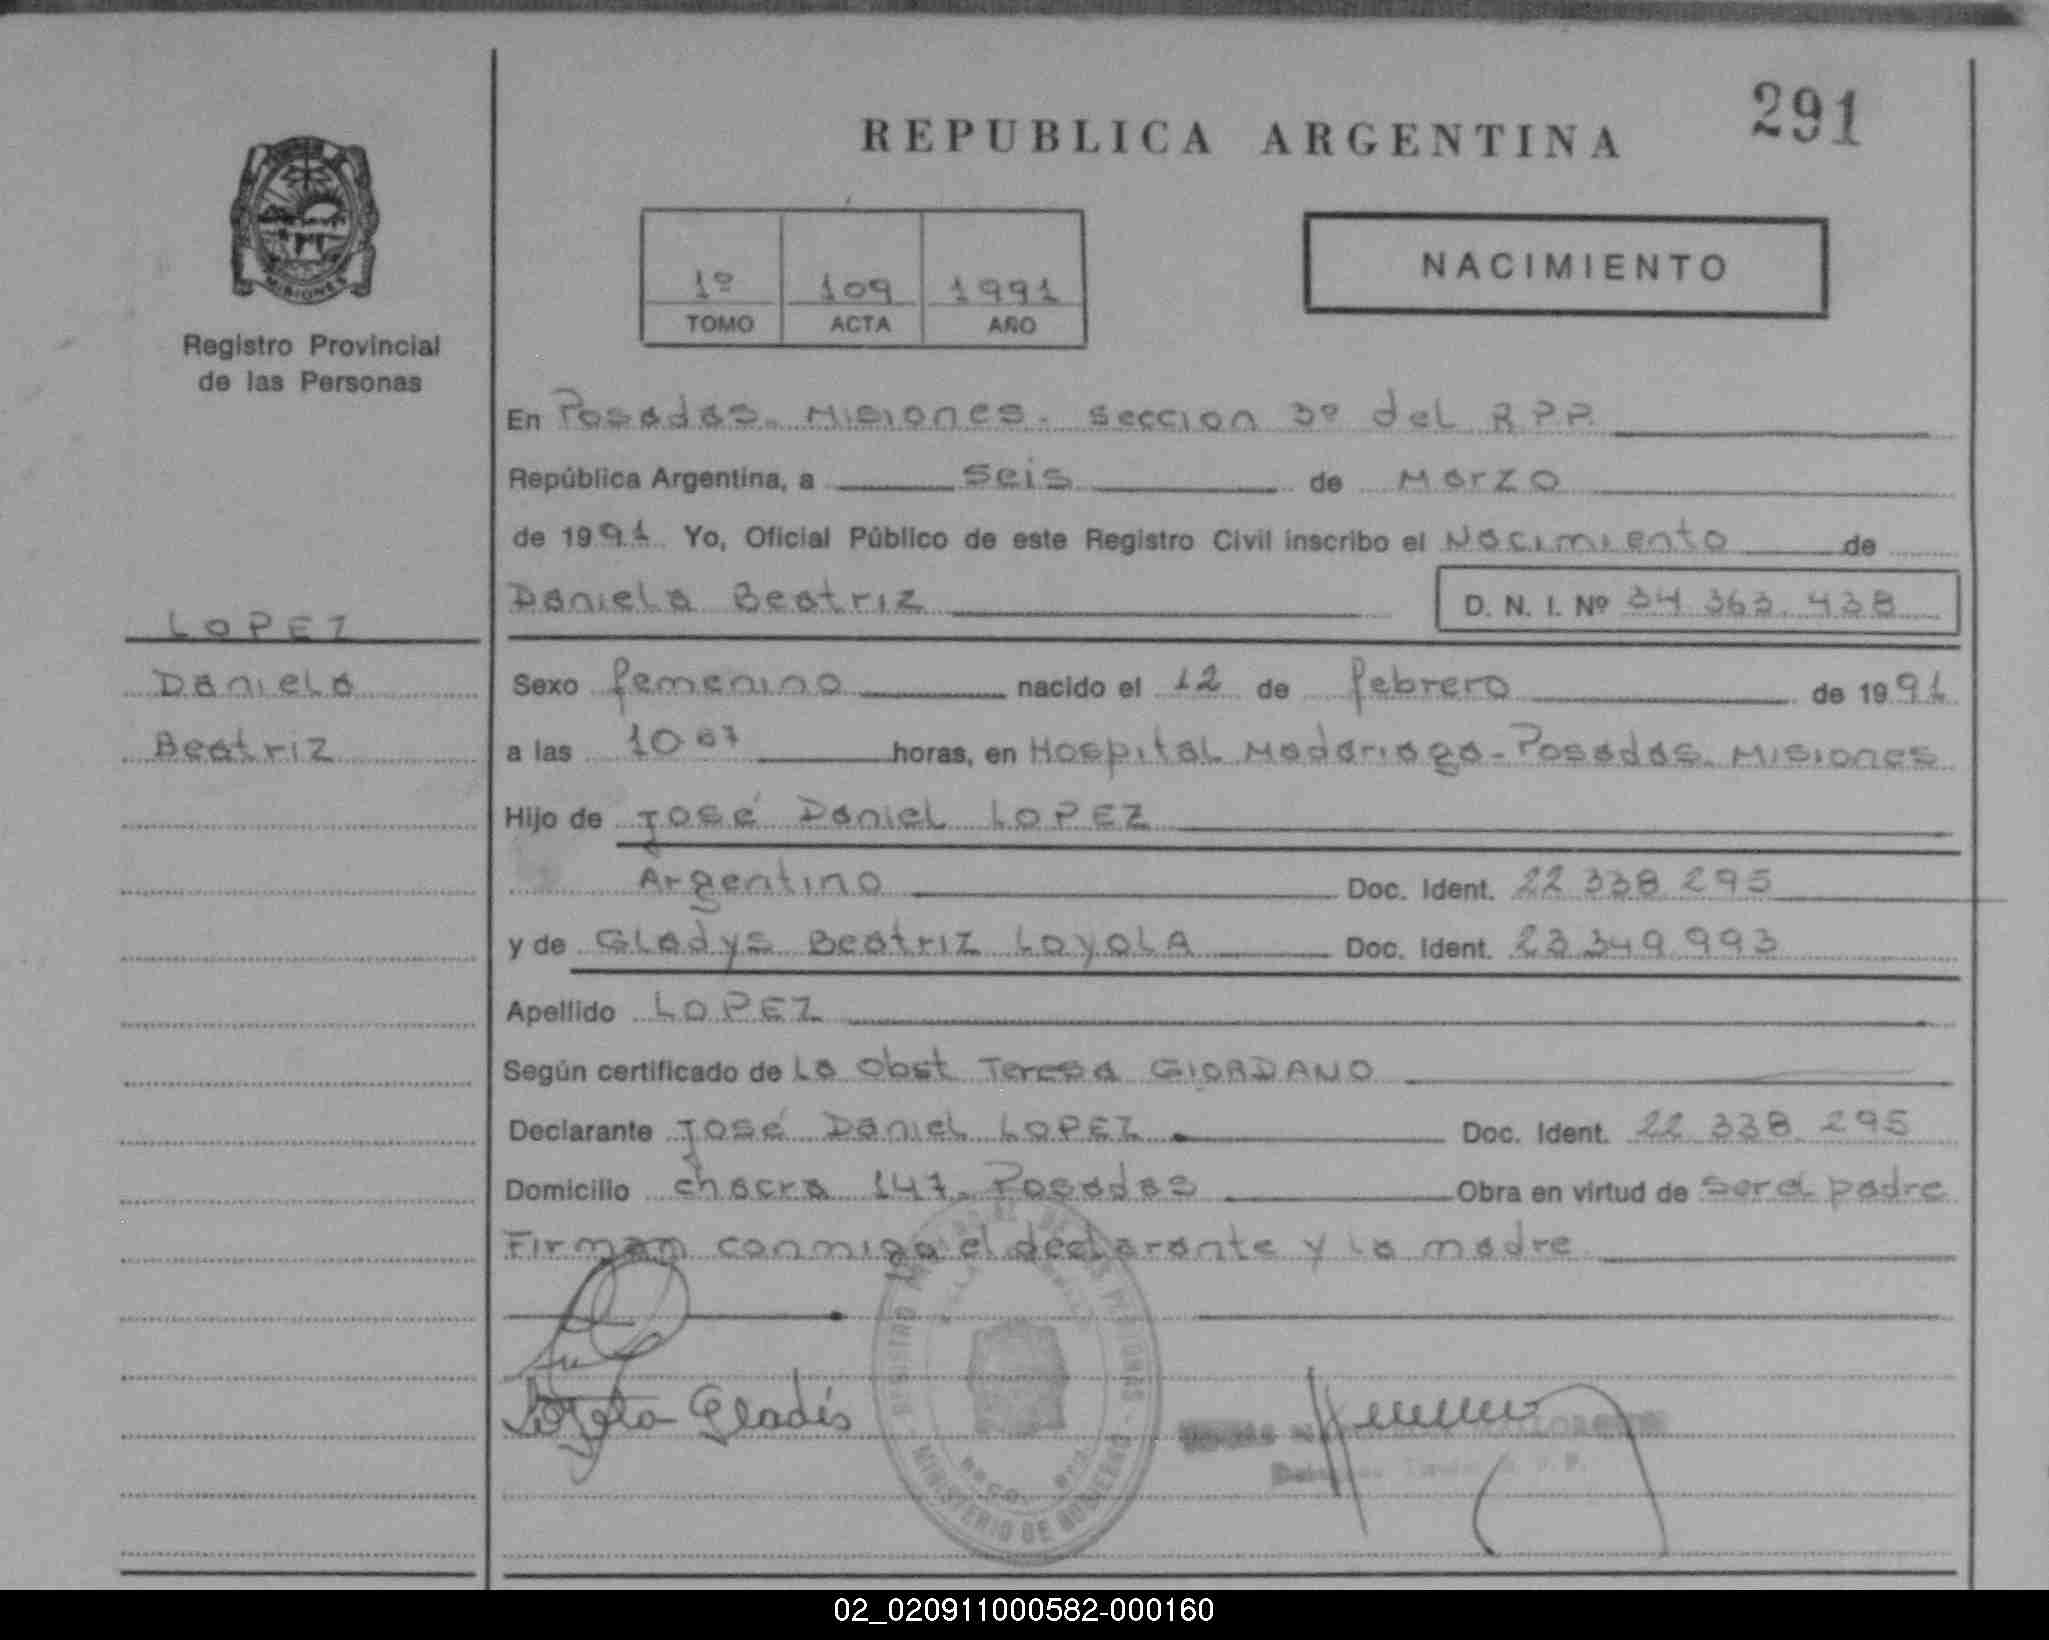 291
REPUBLICA ARGENTINA
NACIMIENTO
1º 109 1991
TOMO ACTA AÑO
MISIONES
Registro Provincial
de las Personas
En Posadas. Misiones. Seccion 3º del R.P.P.
República Argentina, a seis de Marzo
de 1991 Yo, Oficial Público de este Registro Civil inscribo el Nacimiento de
Daniela Beatriz D. N. I. Nº 34 363. 438
LOPEZ
Daniela
Beatriz
Sexo femenino nacido el 12 de febrero de 1991
a las 10 07 horas, en Hospital Madariaga - Posadas. Misiones
Hijo de José Daniel LOPEZ
Argentino Doc. Ident. 22 338 295
y de Gladys Beatriz LoyoLA Doc. Ident. 23 349 993
Apellido LOPEZ
Según certificado de La Obst Teresa GIORDANO
Declarante José Daniel LOPEZ Doc. Ident. 22 338 295
Domicilio chacra 147. Posadas Obra en virtud de ser el padre
Firman conmigo el declarante y la madre
Loyola Gladis
REGISTRO DE LAS PERSONAS - MINISTERIO DE GOBIERNO
02_020911000582-000160